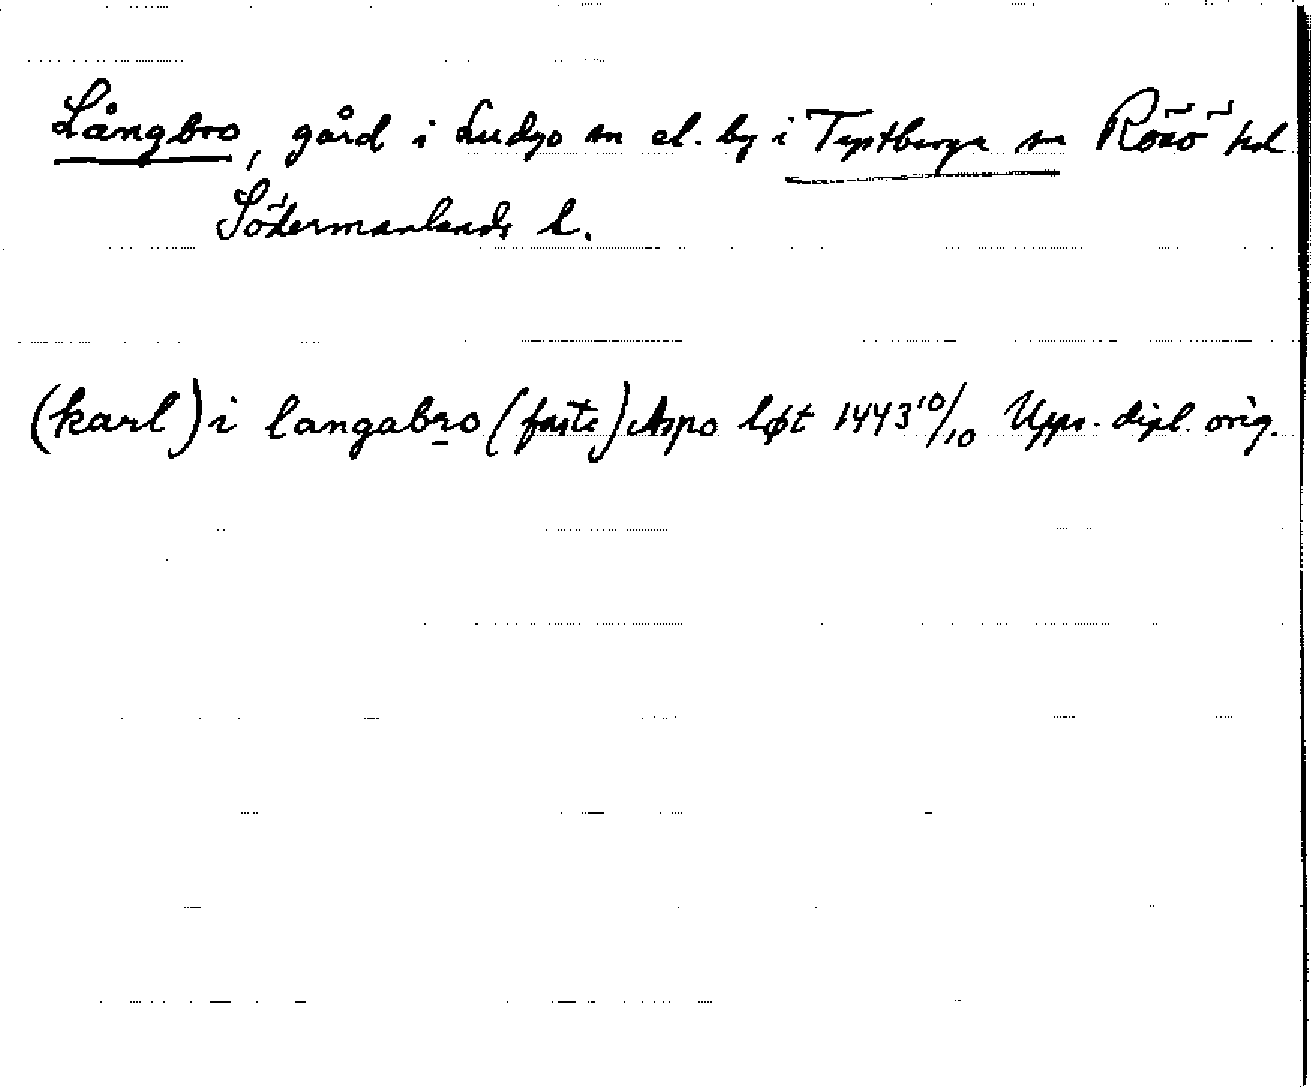 Långbro, gård i Ludgo sn el. by i Tystberga sn Rönö hd
Södermanlands l.
(karl) i langabro (faste) Aspo løt 1443 10/10 Upps. dipl. orig.